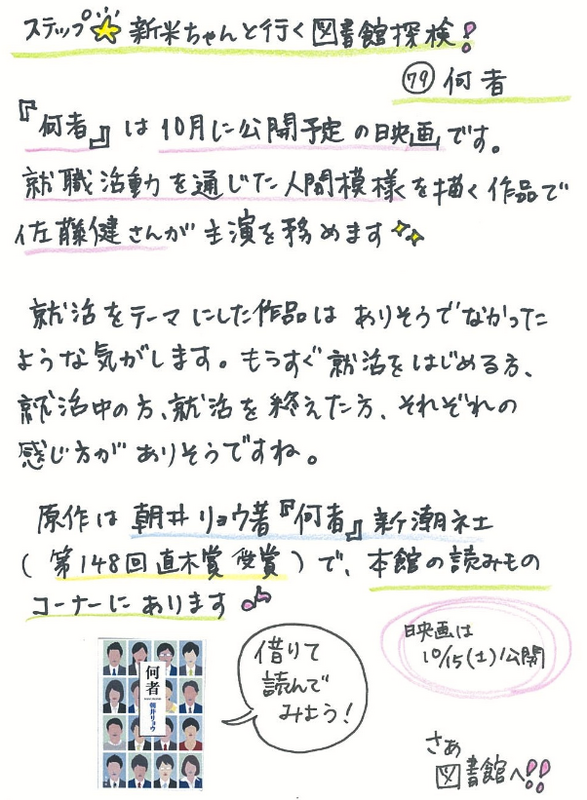 ステップ☆新米ちゃんと行く図書館探検!
79 何者
『何者』は10月に公開予定の映画です。
就職活動を通じた人間模様を描く作品で
佐藤健さんが主演を務めます
就活をテーマにした作品はありそうでなかった
ような気がします。もうすぐ就活をはじめる方、
就活中の方、就活を終えた方、それぞれの
感じ方がありそうですね。
原作は朝井リョウ著『何者』新潮社
(第148回直木賞受賞)で、本館の読みもの
コーナーにあります♪
映画は
10/15(土)公開
何者
朝井リョウ
借りて
読んで
みよう!
さあ
図書館へ!!